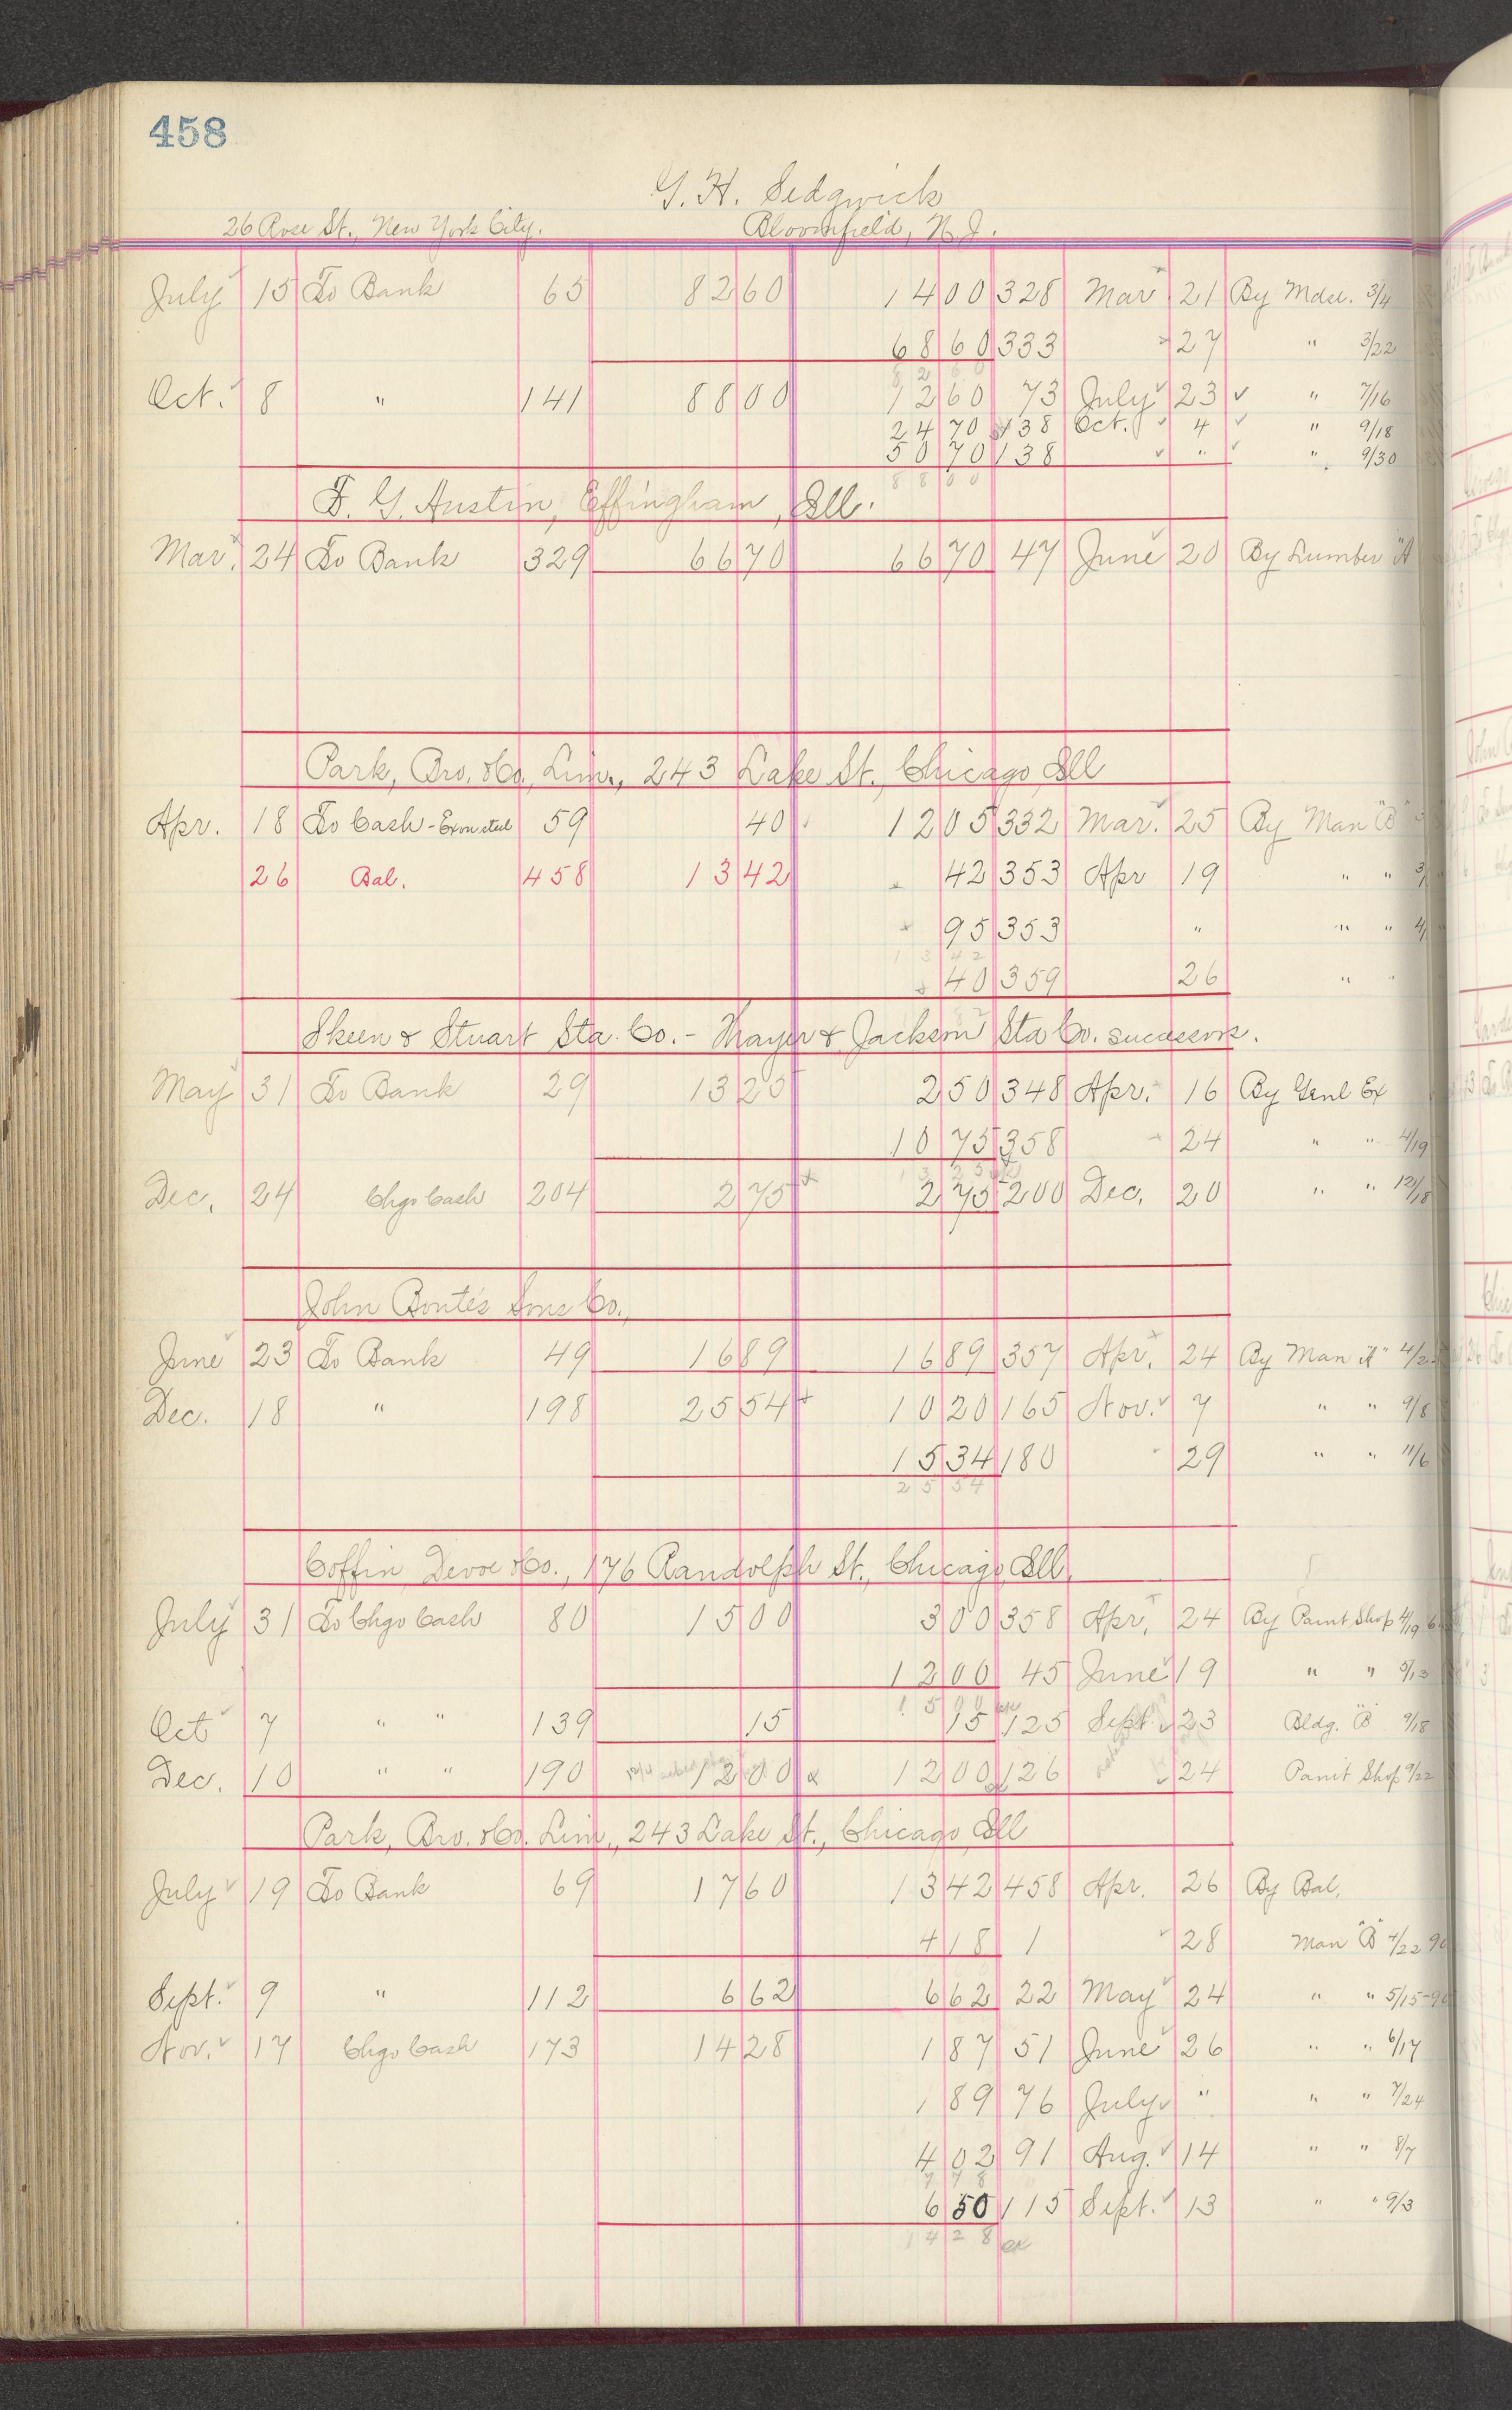 458
G. H. Sedgwick
26 Rose St., New York City. Bloomfield, N.J.
July 15 To Bank 65 82 60 14 00 328 Mar 21 By Mdse. 3/4
68 60 333 27 " 3/22
82 60
Oct. 8 " 141 88 00 12 60 73 July 23 " 7/16
24 70 138 Oct. 4 " 9/18
50 70 138 " " 9/30
88 00
F. G. Austin, Effingham, Ill.
Mar. 24 To Bank 329 66 70 66 70 47 June 20 By Lumber "A
Park, Bro. & Co. Lim., 243 Lake St., Chicago, Ill
Apr. 18 To Cash - Ex on steel 59 40 12 05 332 Mar. 25 By Man "B"
26 Bal. 458 13 42 42 353 Apr 19 " "
95 353 " " "
13 42
40 359 26 " "
Skeen & Stuart Sta. Co. - Thayer & Jackson Sta Co. successors.
May 31 To Bank 29 13 25 2 50 348 Apr. 16 By Genl Ex
10 75 358 24 " " 4/19
13 25
Dec. 24 Chgo Cash 204 2 75 2 75 200 Dec. 20 " " 12/18
John Bonte's Sons Co.,
June 23 To Bank 49 16 89 16 89 357 Apr. 24 By Man "A" 4/2
Dec. 18 " 198 25 54 10 20 165 Nov. 7 " " 9/8
15 34 180 29 " " 11/6
25 54
Coffin Devoe & Co., 176 Randolph St., Chicago, Ill.
July 31 To Chgo Cash 80 15 00 3 00 358 Apr. 24 By Paint Shop 4/19
12 00 45 June 19 " " 5/13
15 00
Oct 7 " " 139 15 15 125 Sept. 23 Bldg. "B" 9/18
Dec. 10 " " 190 12 00 12 00 126 24 Panit Shop 9/22
Park, Bro. & Co. Lim., 243 Lake St., Chicago, Ill
July 19 To Bank 69 17 60 13 42 458 Apr. 26 By Bal.
4 18 1 28 Man "B" 4/22 90
Sept. 9 " 112 6 62 6 62 22 May 24 " " 5/15-90
Nov. 17 Chgo Cash 173 14 28 1 87 51 June 26 " " 6/17
1 89 76 July " " " 7/24
4 02 91 Aug. 14 " " 8/7
7 78
6 50 115 Sept. 13 " " 9/3
14 28 ex